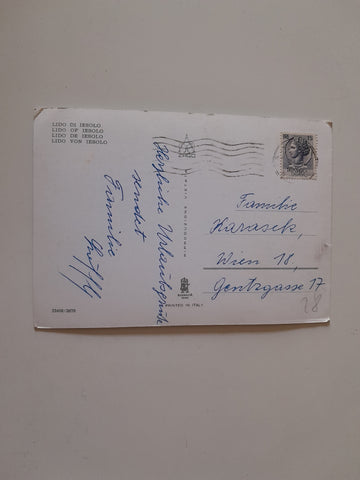 LIDO DI IESOLO
LIDO OF IESOLO
LIDO DE IESOLO
LIDO VON IESOLO
Herzliche Urlaubsgrüße
sendet
Familie
Familie
Harasek,
Wien 18,
Gentzgasse 17
28
PRINTED IN ITALY